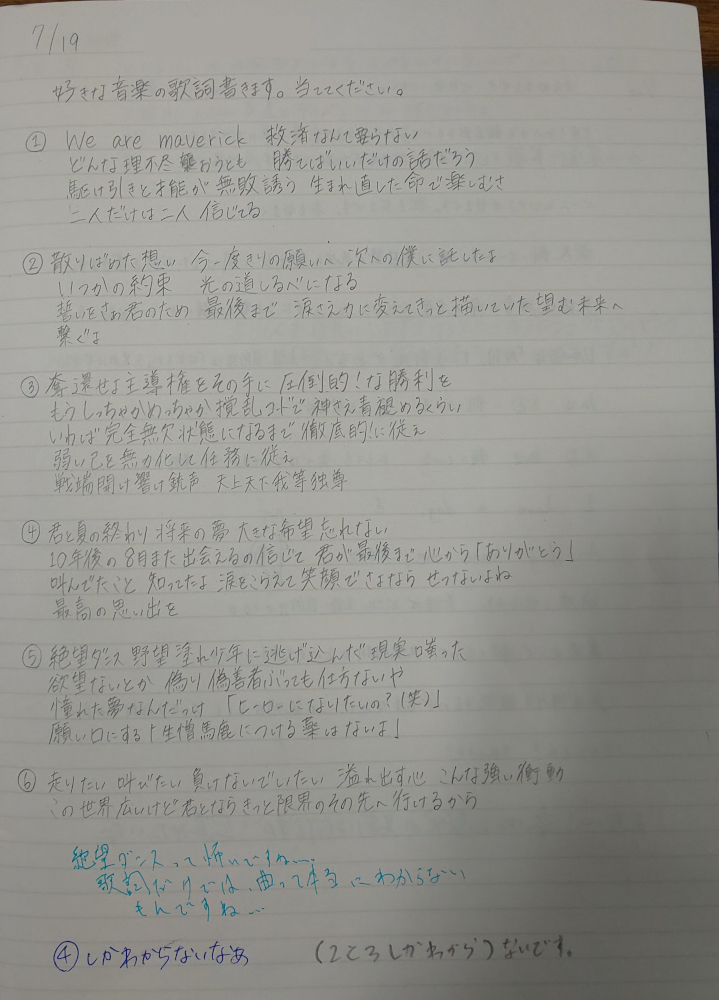 7/19
好きな音楽の歌詞書きます。当ててください。
① We are maverick 救済なんて要らない
どんな理不尽襲おうとも 勝てばいいだけの話だろう
駆け引きと才能が無敗誘う 生まれ直した命で楽しむさ
二人だけは二人 信じてる
② 散りばめた想い 今一度きりの願いへ 次への僕に託したよ
いつかの約束 光の道しるべになる
誓いをさぁ君のため 最後まで 涙さえ力に変えてきっと描いていた望む未来へ
繋ぐよ
③ 奪還せよ主導権をその手に 圧倒的!な勝利を
もうしっちゃかめっちゃか撹乱コードで神さえ青褪めるくらい
いわば完全無欠状態になるまで徹底的!に従え
弱い己を無力化して任務に従え
戦端開け響け銃声 天上天下我等独尊
④ 君と夏の終わり 将来の夢 大きな希望 忘れない
10年後の8月また出会えるの信じて 君が最後まで心から「ありがとう」
叫んでたこと 知ってたよ 涙をこらえて笑顔でさよなら せつないよね
最高の思い出を
⑤ 絶望ダンス 野望塗れ少年に逃げ込んだ現実嗤った
欲望ないとか 偽り 偽善者ぶっても仕方ないや
憧れた夢なんだっけ 「ヒーローになりたいの?(笑)」
願い口にする「生憎馬鹿につける薬はないよ」
⑥ 走りたい 叫びたい 負けないでいたい 溢れ出す心 こんな強い衝動
この世界広いけど君とならきっと限界のその先へ行けるから
絶望ダンスって怖いですね…。
歌詞だけでは、曲って本当にわからない
もんですね…
④しかわからないなあ (2ころしかわから)ないです。